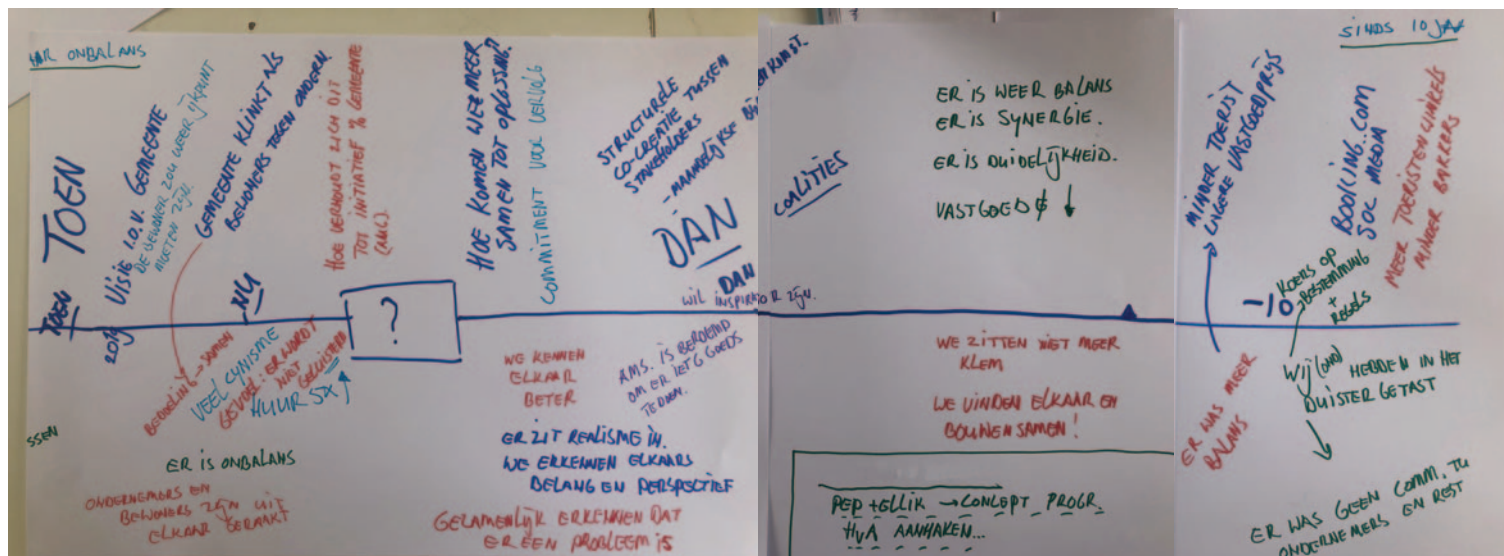 ONBALANS
TOEN
TOEN
2019
VISIE I.O.V. GEMEENTE
DE BEWONER ZOU WEER IJKPUNT
MOETEN ZIJN.
GEMEENTE KLINKT ALS
BEWONERS TEGEN ONDERN.
NU
HOE VERHOUDT ZICH DIT
TOT INITIATIEF % GEMEENTE
BEDOELING → SAMEN
VEEL CYNISME
GEVOEL: ER WORDT
NIET
GELUISTERD
HUUR 5X ↑
SSEN
ER IS ONBALANS
ONDERNEMERS EN
BEWONERS ZIJN UIT
ELKAAR GERAAKT
?
HOE KOMEN WE MEER
SAMEN TOT OPLOSSING?
COMMITMENT VOOR VERVOLG
STRUCTURELE
CO-CREATIE TUSSEN
STAKEHOLDERS
- MAANDELIJKSE
DAN
DAN
WIL INSPIRATOR ZIJN.
WE KENNEN
ELKAAR
BETER
AMS. IS BEROEMD
OM ER IETS GOEDS
TE DOEN.
ER ZIT REALISME IN.
WE ERKENNEN ELKAARS
BELANG EN PERSPECTIEF
GEZAMENLIJK ERKENNEN DAT
ER EEN PROBLEEM IS
COALITIES
ER IS WEER BALANS
ER IS SYNERGIE.
ER IS DUIDELIJKHEID.
VASTGOED $ ↓
WE ZITTEN NIET MEER
KLEM
WE VINDEN ELKAAR EN
BOUWEN SAMEN!
PEP + ELLIK → CONCEPT PROGR.
HVA AANHAKEN...
SINDS 10 JAAR
MINDER TOERIST
LAGERE VASTGOEDPRIJS
-10
KOERS OP
BESTEMMING
+
REGELS
BOOKING.COM
SOC MEDIA
MEER TOERISTENWINKELS
MINDER BAKKERS
ER WAS MEER
BALANS
WIJ (OND) HEBBEN IN HET
DUISTER GETAST
ER WAS GEEN COMM. TU
ONDERNEMERS EN REST